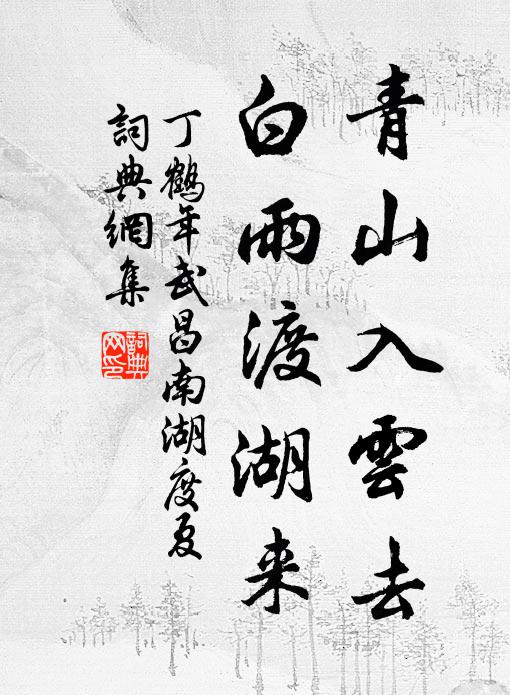 青山入雲去
白雨渡湖来
丁鶴年武昌南湖度夏
詞典網集
詞典網印